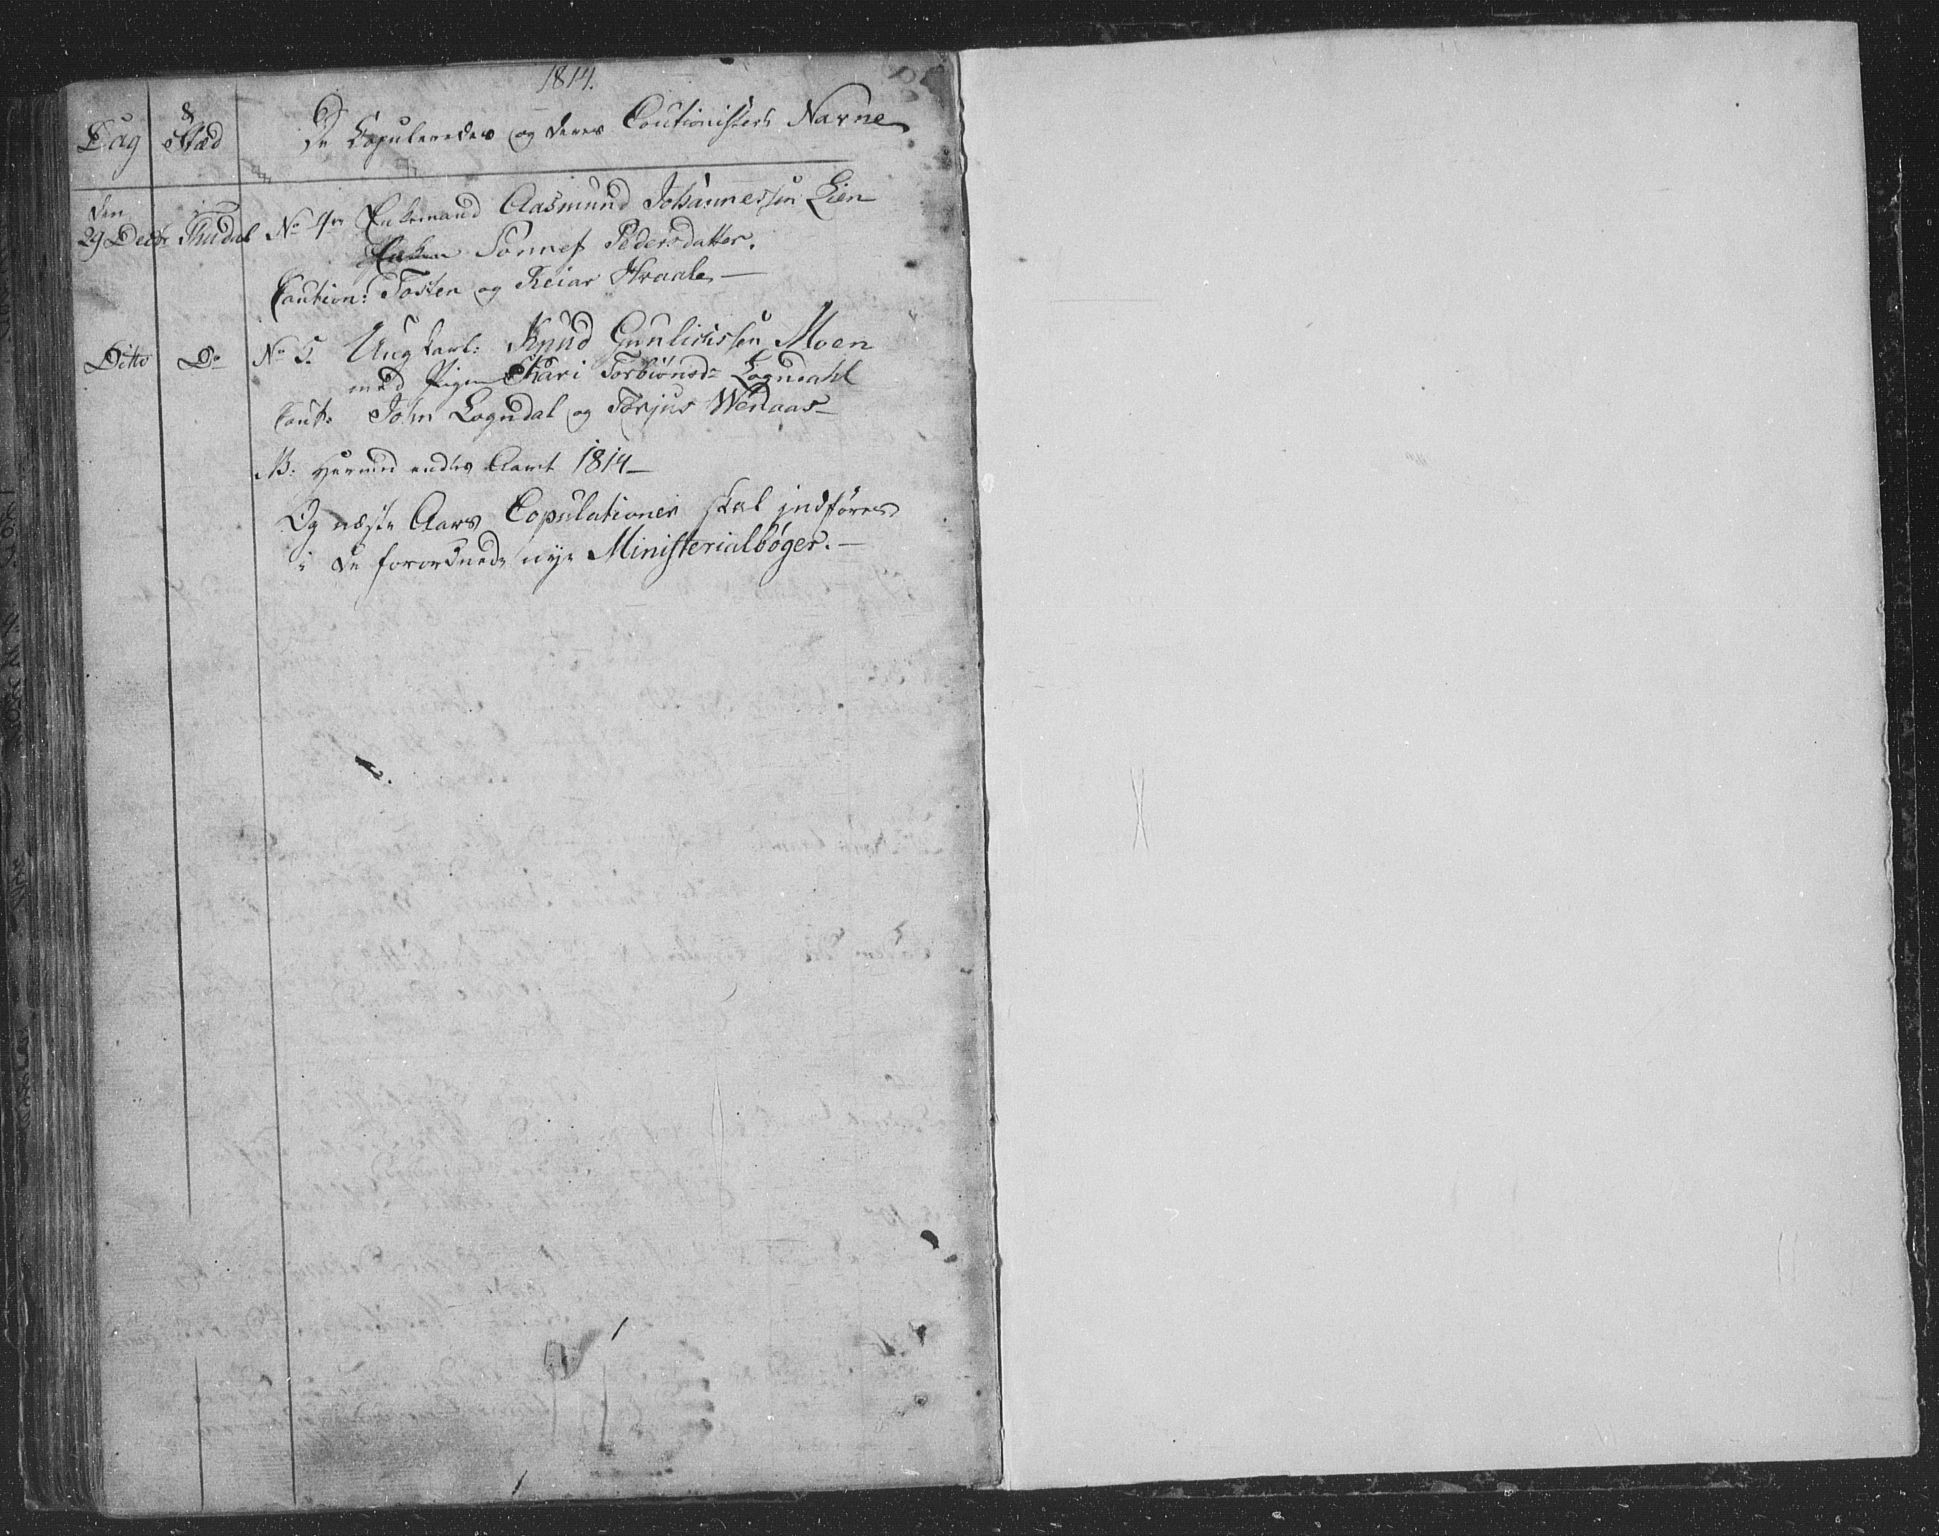 1814.
Dag & Stæd De Copuleredes og deres Cautionisters Navne
den
29 Decbr Thudal No 4. Enkemand Aasmund Johannessen Lien
Enken Sønnef Pedersdatter.
Caution: Tosten og Reiar Hraale
Ditto Do No 5. Ung Karl: Knud Gunlichssen Moen
med Pigen Kari Torbiønsd: Logndahl
Caut: John Logndal og Torjus Wenaas
NB: Hermed endes Aaret 1814
Og næste Aars Copulationer skal indføres
i de forordnede nye Ministerialbøger.